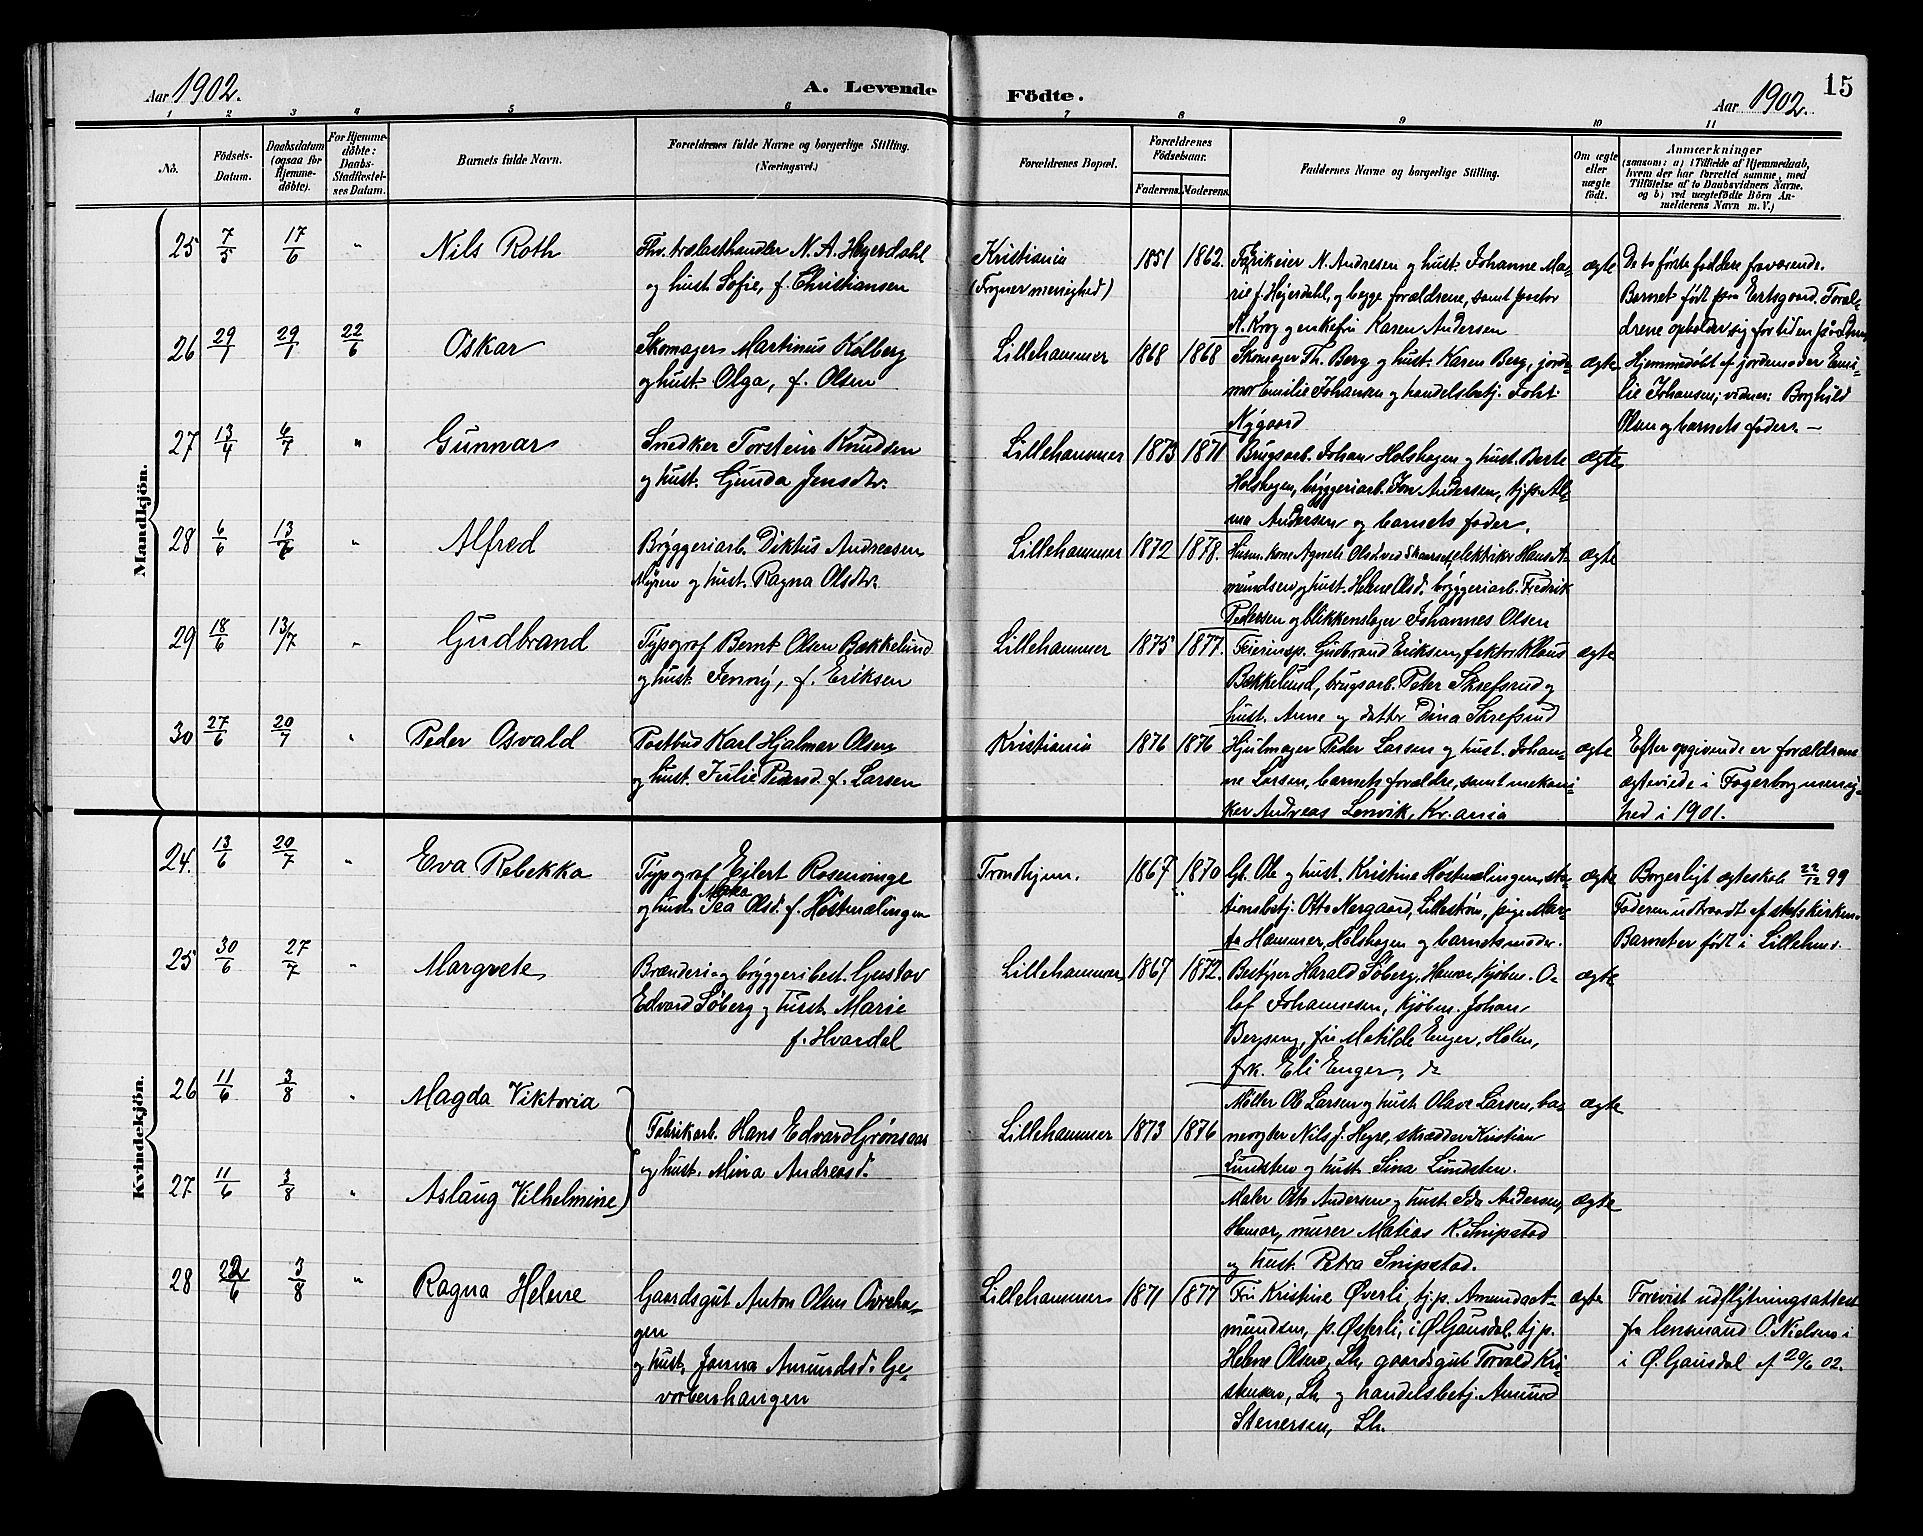 Aar 1902.
A. Levende Födte.
Aar 1902.
15
1 2 3 4 5 6 7 8 9 10 11
No.
Födsels-Datum.
Daabsdatum (ogsaa for Hjemme-döbte).
For Hjemme-döbte: Daabs-Stadfæstel-ses Datum.
Barnets fulde Navn.
Forældrenes fulde Navne og borgerlige Stilling.
(Næringsvei.)
Forældrenes Bopæl.
Forældrenes Födselsaar.
Faderens. Moderens.
Faddernes Navne og borgerlige Stilling.
Om ægte eller uægte födt.
Anmærkninger
(saasom: a) i Tilfælde af Hjemmedaab, hvem der har forrettet samme, med Tilföielse af to Daabsvidners Navne, og b) ved uægtefödte Börn An-melderens Navn m. V.)
Mandkjön.
25 7/5 17/6 " Nils Roth
Fhv. trælasthandler N. A. Heyerdahl
og hust. Sofie, f. Christiansen
Kristiania
(Frogner menighed)
1851 1862.
Fabrikeier N. Andresen og hust. Johanne Ma-
rie f. Heyerdahl, og begge forældrene, samt pastor
A. Krog og enkefru Karen Andersen
ægte
De to første faddere fraværende.
Barnet født paa Ersgaard. Foræl-
drene opholder sig for tiden
26 29/1 29/1 22/6 Oskar
Skomager Martinus Kolberg
og hust. Olga, f. Olsen
Lillehammer 1868 1868
Skomager Th. Berg og hust. Karen Berg, jord-
mor Emilie Johansen og handelsbetj. Joh.
Nygaard
ægte
Hjemmedøbt af jordemoder Emi-
lie Johansen; vidner: Borghild
Olsen og barnets fader. —
27 13/4 6/7 " Gunnar
Snedker Torstein Knudsen
og hust. Gunda Jensdtr.
Lillehammer 1873 1871
Brugsarb. Johan Holshagen og hust. Berte
Holshagen, bryggeriarb. Jon Andersen, tj.p. Al-
ma Andersen og barnets fader.
ægte
28 6/6 13/6 " Alfred
Bryggeriarb. Diktus Andreasen
Myren og hust. Ragna Olsdtr.
Lillehammer 1872 1878.
Husm. kone Agnete Olsd. elektriker Hans A-
mundsen og hust. Helene Olsd. bryggeriarb. Fredrik
Pedersen og blikkenslager Johannes Olsen
ægte
29 18/6 13/7 " Gudbrand
Typograf Bernt Olsen Bækkelund
og hust. Jenny, f. Eriksen
Lillehammer 1875 1877.
Feierinsp. Gudbrand Eriksen, faktor Klaus
Bækkelund, brugsarb. Peter Skrefsrud og
hust. Anne og datter Dina Skrefsrud
ægte
30 27/6 20/7 " Peder Osvald
Postbud Karl Hjalmar Olsen
og hust. Julie f. Larsen
Kristiania 1876 1876
Hjulmager Peder Larsen og hust. Johan-
ne Larsen, barnets forældre, samt mekani-
ker Andreas Lenvik, Kr.ania
ægte
Efter opgivende er forældrene
ægteviede i Fagerborg menig-
hed i 1901.
Kvindekjön.
24. 13/6 20/7 " Eva Rebekka
Typograf Eilert Rosenvinge
og hust. Tea Olsd. f. Høstmælingen
Trondhjem. 1867 1870
Gb. Ole og hust. Kristine Høstmælingen, sta-
tionsbetj. Otto Nergaard, Lillestrøm, pige Mar-
ta Hammer, Holshagen og barnets moder.
ægte
Borgerligt ægteskab 22/12 99
Faderen udtraadt af statskirken.
Barnet er født i Lilleham.
25 30/6 27/7 " Margrete
Brænderi og bryggeribest. Gustav
Edvard Søberg og hust. Marie
f. Hvardal
Lillehammer 1867 1872.
Bestyrer Harald Søberg, Hamar, kjøbm. O-
laf Johannesen, kjøbm. Johan
Bergseng, fru Matilde Enger, Holen,
frk. Eli Enger, do
ægte
26 11/6 3/8 " Magda Viktoria
Fabrikarb. Hans Edvard Grønaas
og hust. Mina Andreasd.
Lillehammer 1873 1876
Møller Ole Larsen og hust. Olave Larsen, ba-
nevogter Nils J. Heyre, skrædder Kristian
Lundsten og hust. Sina Lundsten.
ægte
27 11/6 3/8 " Aslaug Vilhelmine
Maler Otto Andersen og hust. Ida Andersen,
Hamar, murer Matias K. Snipstad
og hust. Petra Snipstad.
ægte
28 22/6 3/8 " Ragna Helene
Gaardsgut Anton Olsen Ovreha-
gen
og hust. Janna Amundsd. Ge-
vorbenhaugen
Lillehammer 1871 1877
Fru Kristine Øverli, tj.p. Amunda A-
mundsen, p. Øverli, i Ø. Gausdal, tj.p.
Helene Olsen, Lh. gaardsgut Torvald Kri-
stensen, Lh. og handelsbetj. Amund
Stenersen, Lh.
ægte
Forevist udflytningsattest
fra lensmand O. Nielsen i
i Ø. Gausdal af 20/6 02.